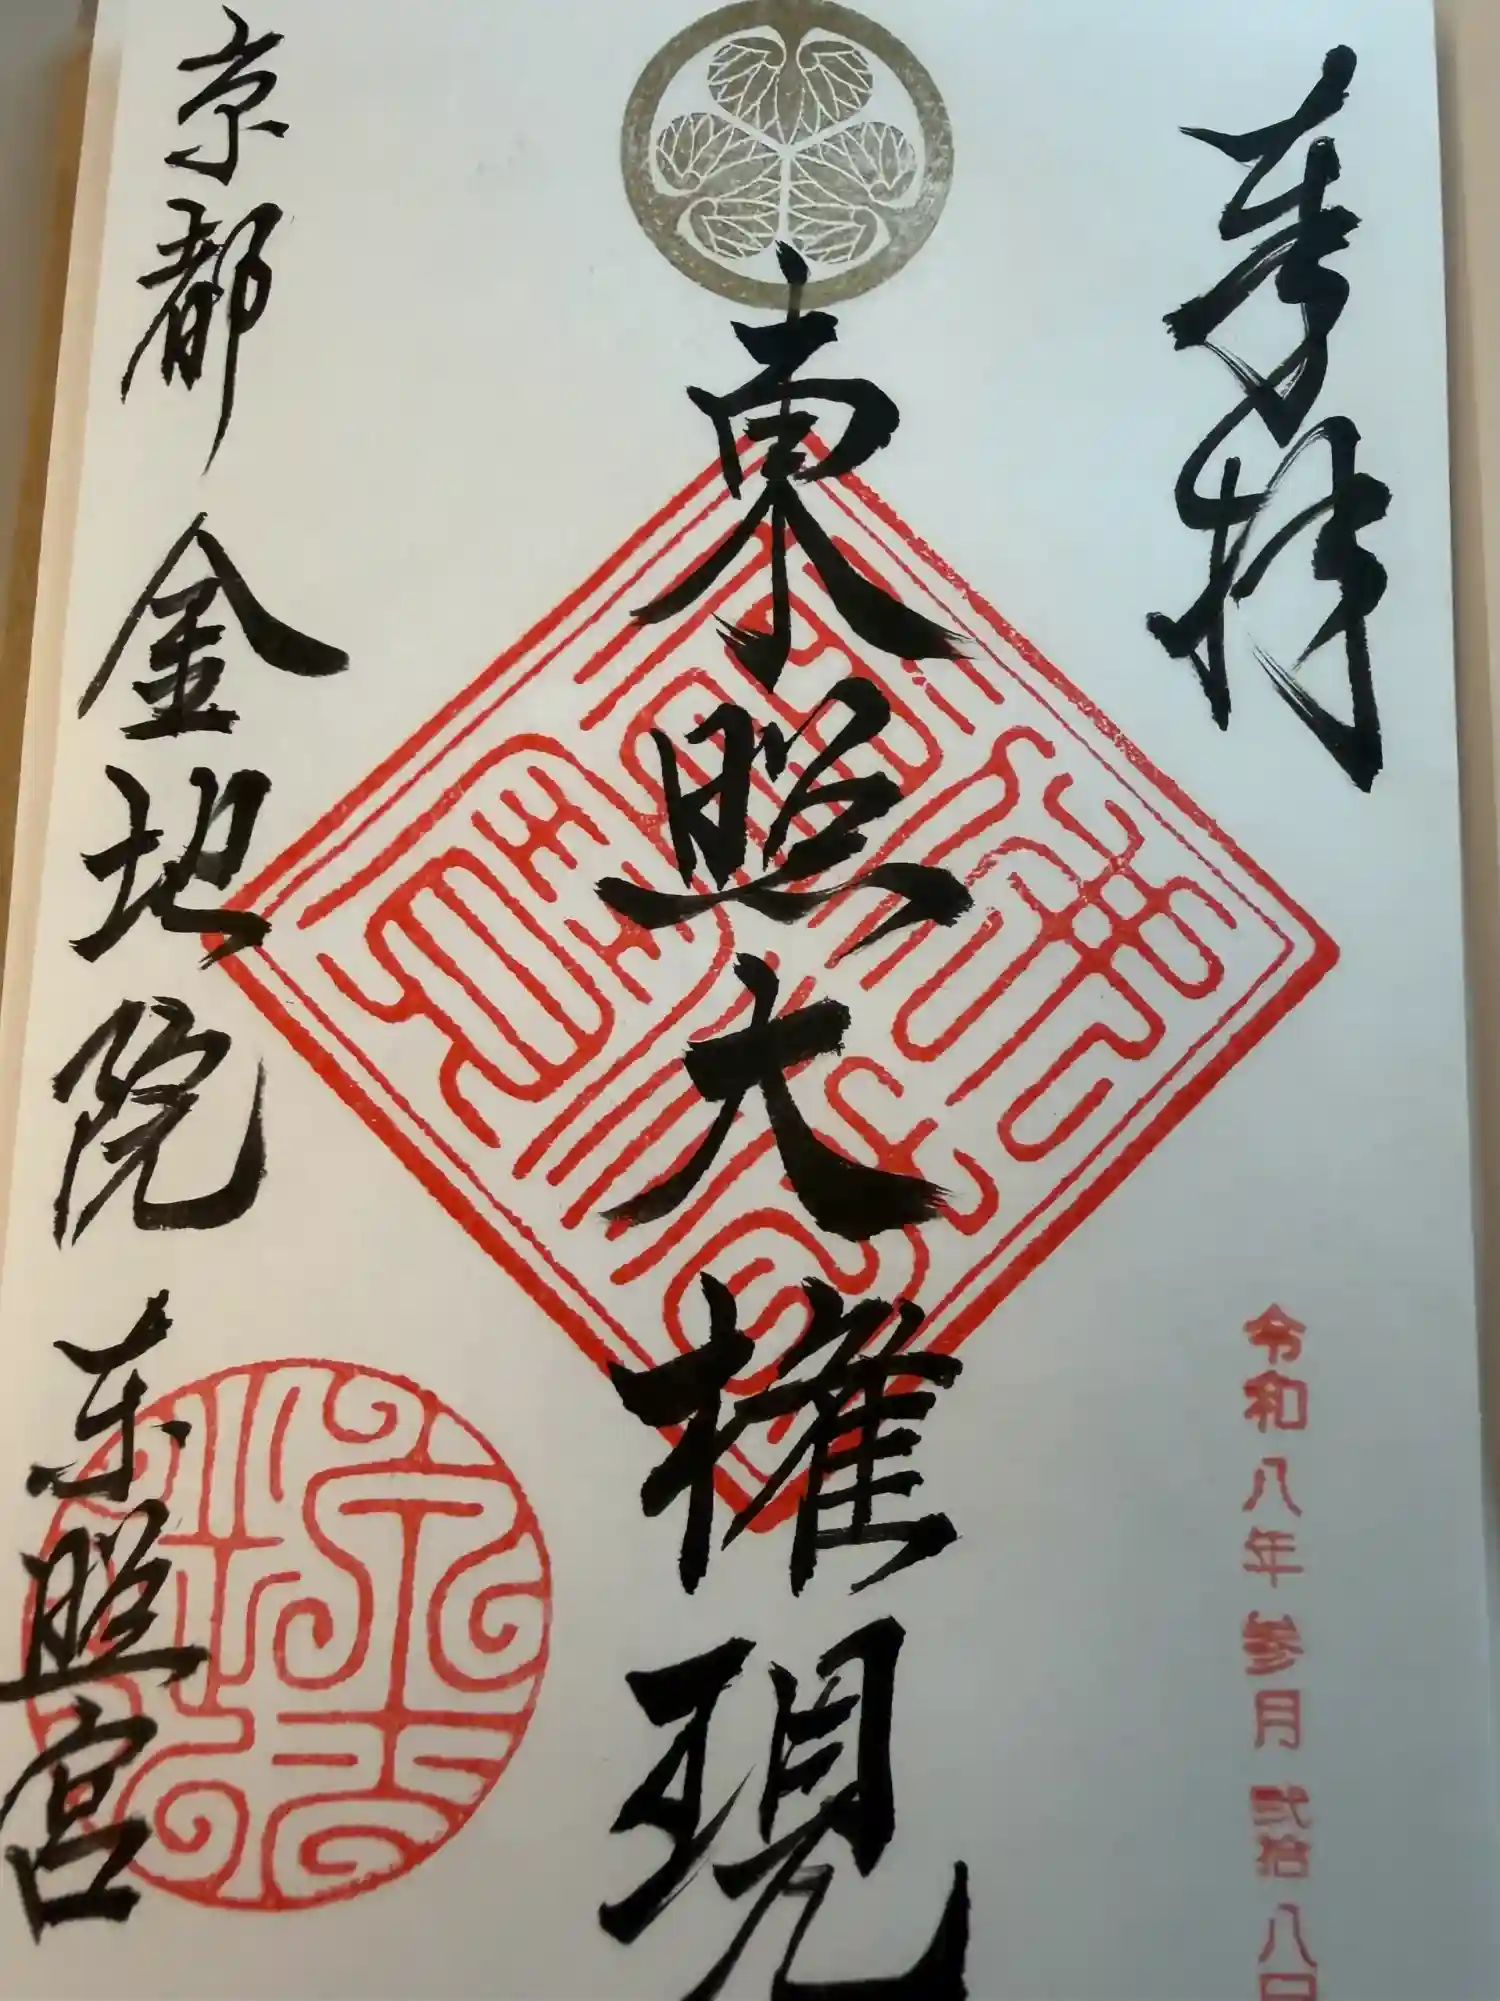 奉拝
令和八年参月弐拾八日
東照大権現
京都金地院東照宮